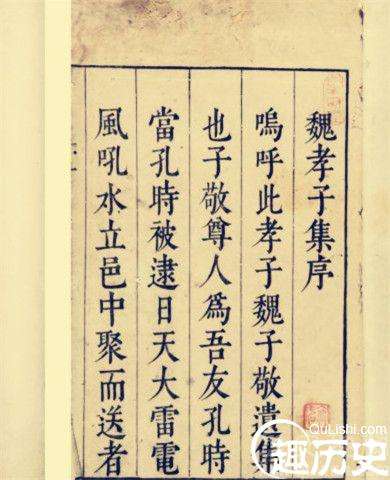 魏孝子集序
嗚呼此孝子魏子敬遺集
也子敬尊人爲吾友孔時
當孔時被逮日天大雷電
風吼水立邑中聚而送者
QuLishi.com
趣历史